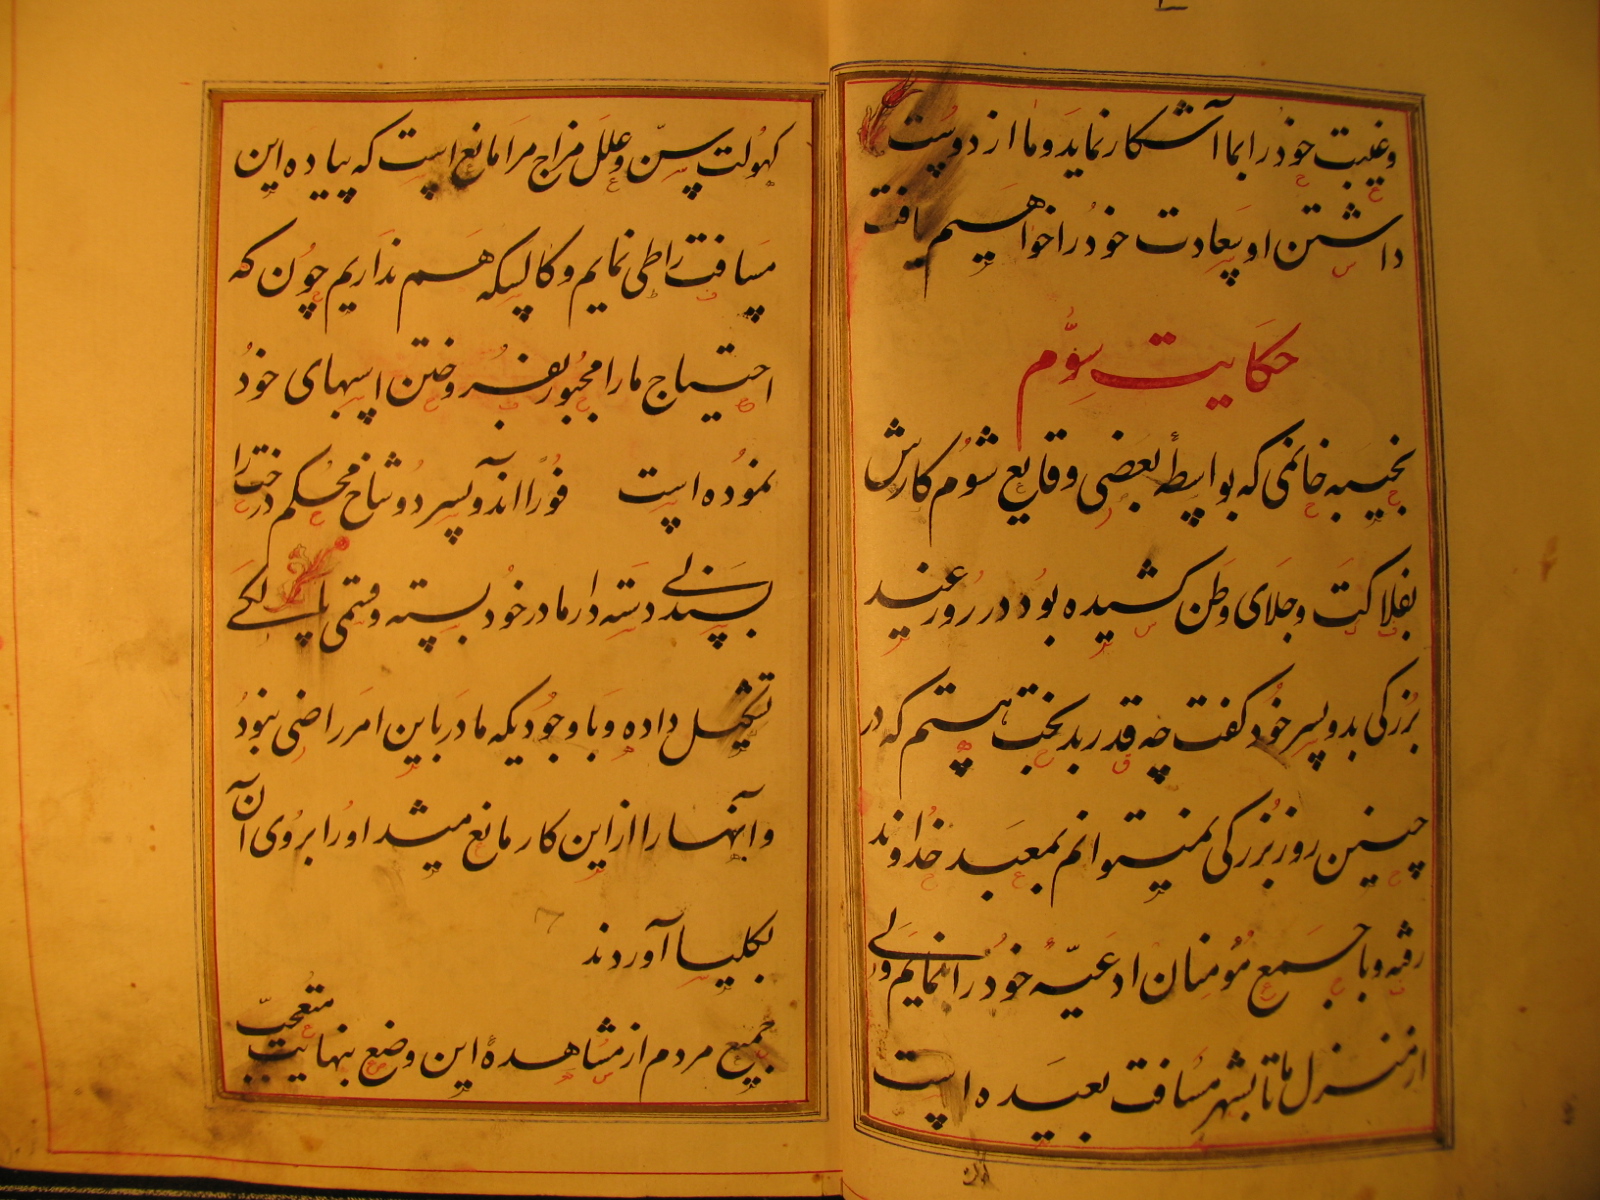 و غیبت خود را بما آشکار نماید و ما از دوست
داشتن او سعادت خود را خواهیم یافت
حکایت سوّم
نجیبه خانمی که بواسطهٔ بعضی وقایع شوم کارش
بفلاکت و جلای وطن کشیده بود در روز عید
بزرگی بدو پسر خود گفت چه قدر بدبخت هستم که در
چنین روز بزرگی نمیتوانم بمعبد خداوند
رفته و با جمیع مؤمنان ادعیّه خود را نمایم ولی
از منزل ما تا بشهر مسافت بعیده است
کهولت سنّ و علل مزاج مرا مانع است که پیاده این
مسافت را طی نمایم و کالسکه هم نداریم چون که
احتیاج ما را مجبور بفروختن اسبهای خود
نموده است فوراً اندو پسر دو شاخ محکم درخت را
بسندلی دسته دار مادر خود بسته و قسمی پالکی
تشکیل داده و با وجودیکه مادر باین امر راضی نبود
و آنها را از این کار مانع میشد او را بروی آن
بکلیسا آوردند
جمیع مردم از مشاهدهٔ این وضع بنهایت متعجب